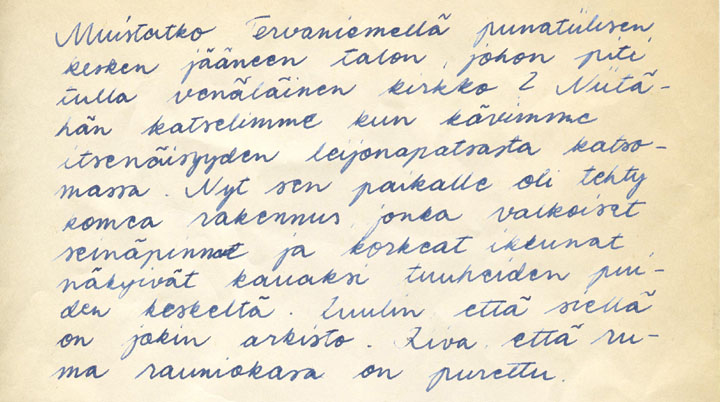 Muistatko Tervaniemellä punatiilisen
kesken jääneen talon, johon piti
tulla venäläinen kirkko? Niitä-
hän katselimme kun kävimme
itsenäisyyden leijonapatsasta katso-
massa. Nyt sen paikalle oli tehty
komea rakennus, jonka valkoiset
seinäpinnat ja korkeat ikkunat
näkyivät kauaksi tuuheiden pui-
den keskeltä. Luulin että siellä
on jokin arkisto. Kiva että ru-
ma rauniokasa on purettu.